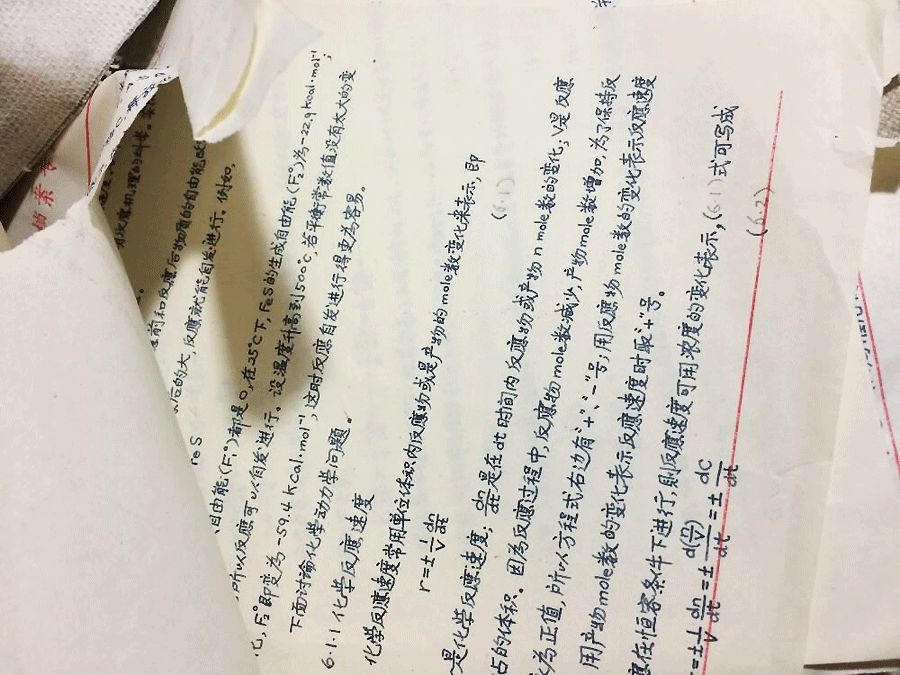 档案
前和反应后物质的自由能
后的大,反应就能自发进行。例如,
FeS
自由能(F°)都是0,在25℃下,FeS的生成自由能(F°)为-22.9 kcal·mol⁻¹,
所以反应可以自发进行。设温度升高到500℃,若平衡常数值没有太大的变
化,F°即变为-59.4 kcal·mol⁻¹,这时反应自发进行得更为容易。
下面讨论化学动力学问题。
6.1.1 化学反应速度
化学反应速度常用单位体积内反应物或是产物的mole数变化来表示,即
r=±1/V dn/dt (6.1)
是化学反应速度;dn/dt是在dt时间内反应物或产物n mole数的变化;V是反应
占的体积。因为反应过程中,反应物mole数减少,产物mole数增加,为了保持反
为正值,所以方程式右边有"+"、"-"号;用反应物mole数的变化表示反应速度
用产物mole数的变化表示反应速度时取"+"号。
应在恒容条件下进行,则反应速度可用浓度的变化表示,(6.1)式可写成
=±1/V dn/dt=±d(n/V)/dt=±dC/dt (6.2)